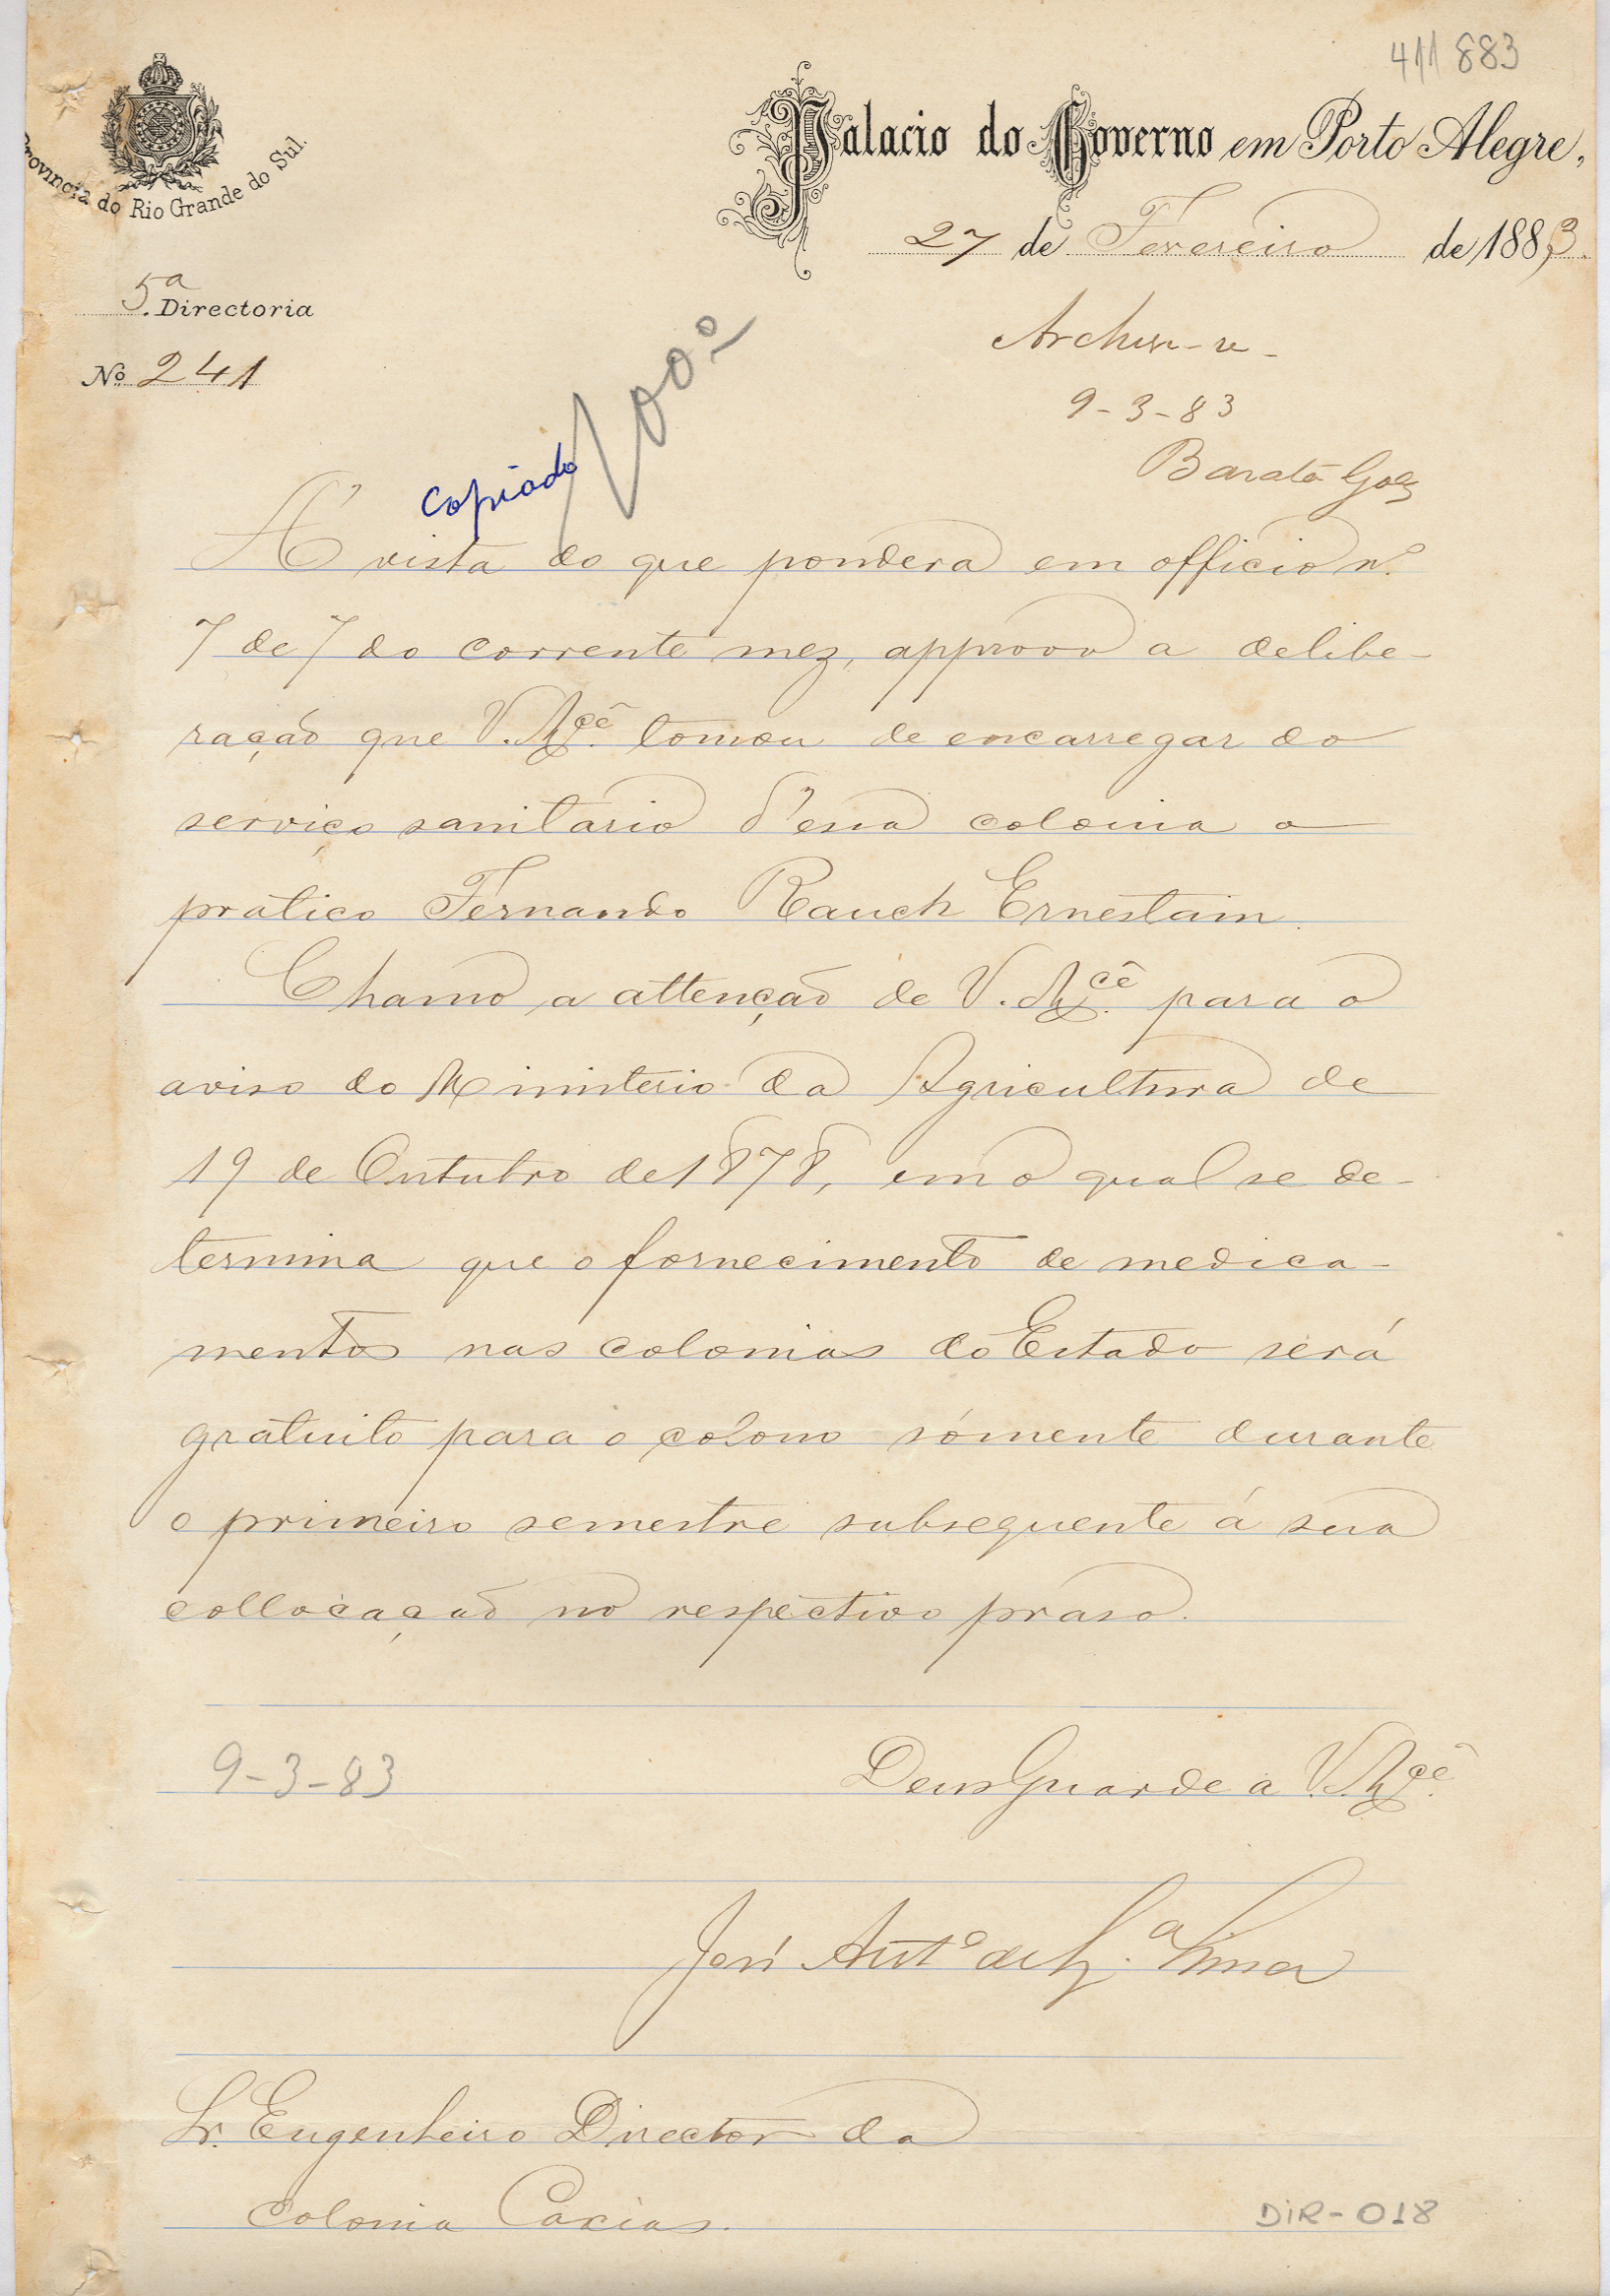 411 883
Provincia do Rio Grande do Sul.
Palacio do Governo em Porto Alegre,
27 de Fevereiro de 1883.
5ª Directoria
Nº 241
Archive-se-
9-3-83
Barata Goes
copiado
A' vista do que pondera em officio nº
7 de 7 do corrente mez, approvo a delibe-
ração que V. Mcê. tomou de encarregar do
serviço sanitario d'essa colonia o
pratico Fernando Rauch Ernestain.
Chamo a attenção de V. Mcê. para o
aviso do Ministerio da Agricultura de
19 de Outubro de 1878, em o qual se de-
termina que o fornecimento de medica-
mentos nas colonias do Estado será
gratuito para o colono sómente durante
o primeiro semestre subsequente á sua
collocação no respectivo praso.
9-3-83
Deus Guarde a V. Mcê.
José Antº de Lima
Sr. Engenheiro Director da
Colonia Caxias.
DIR-018